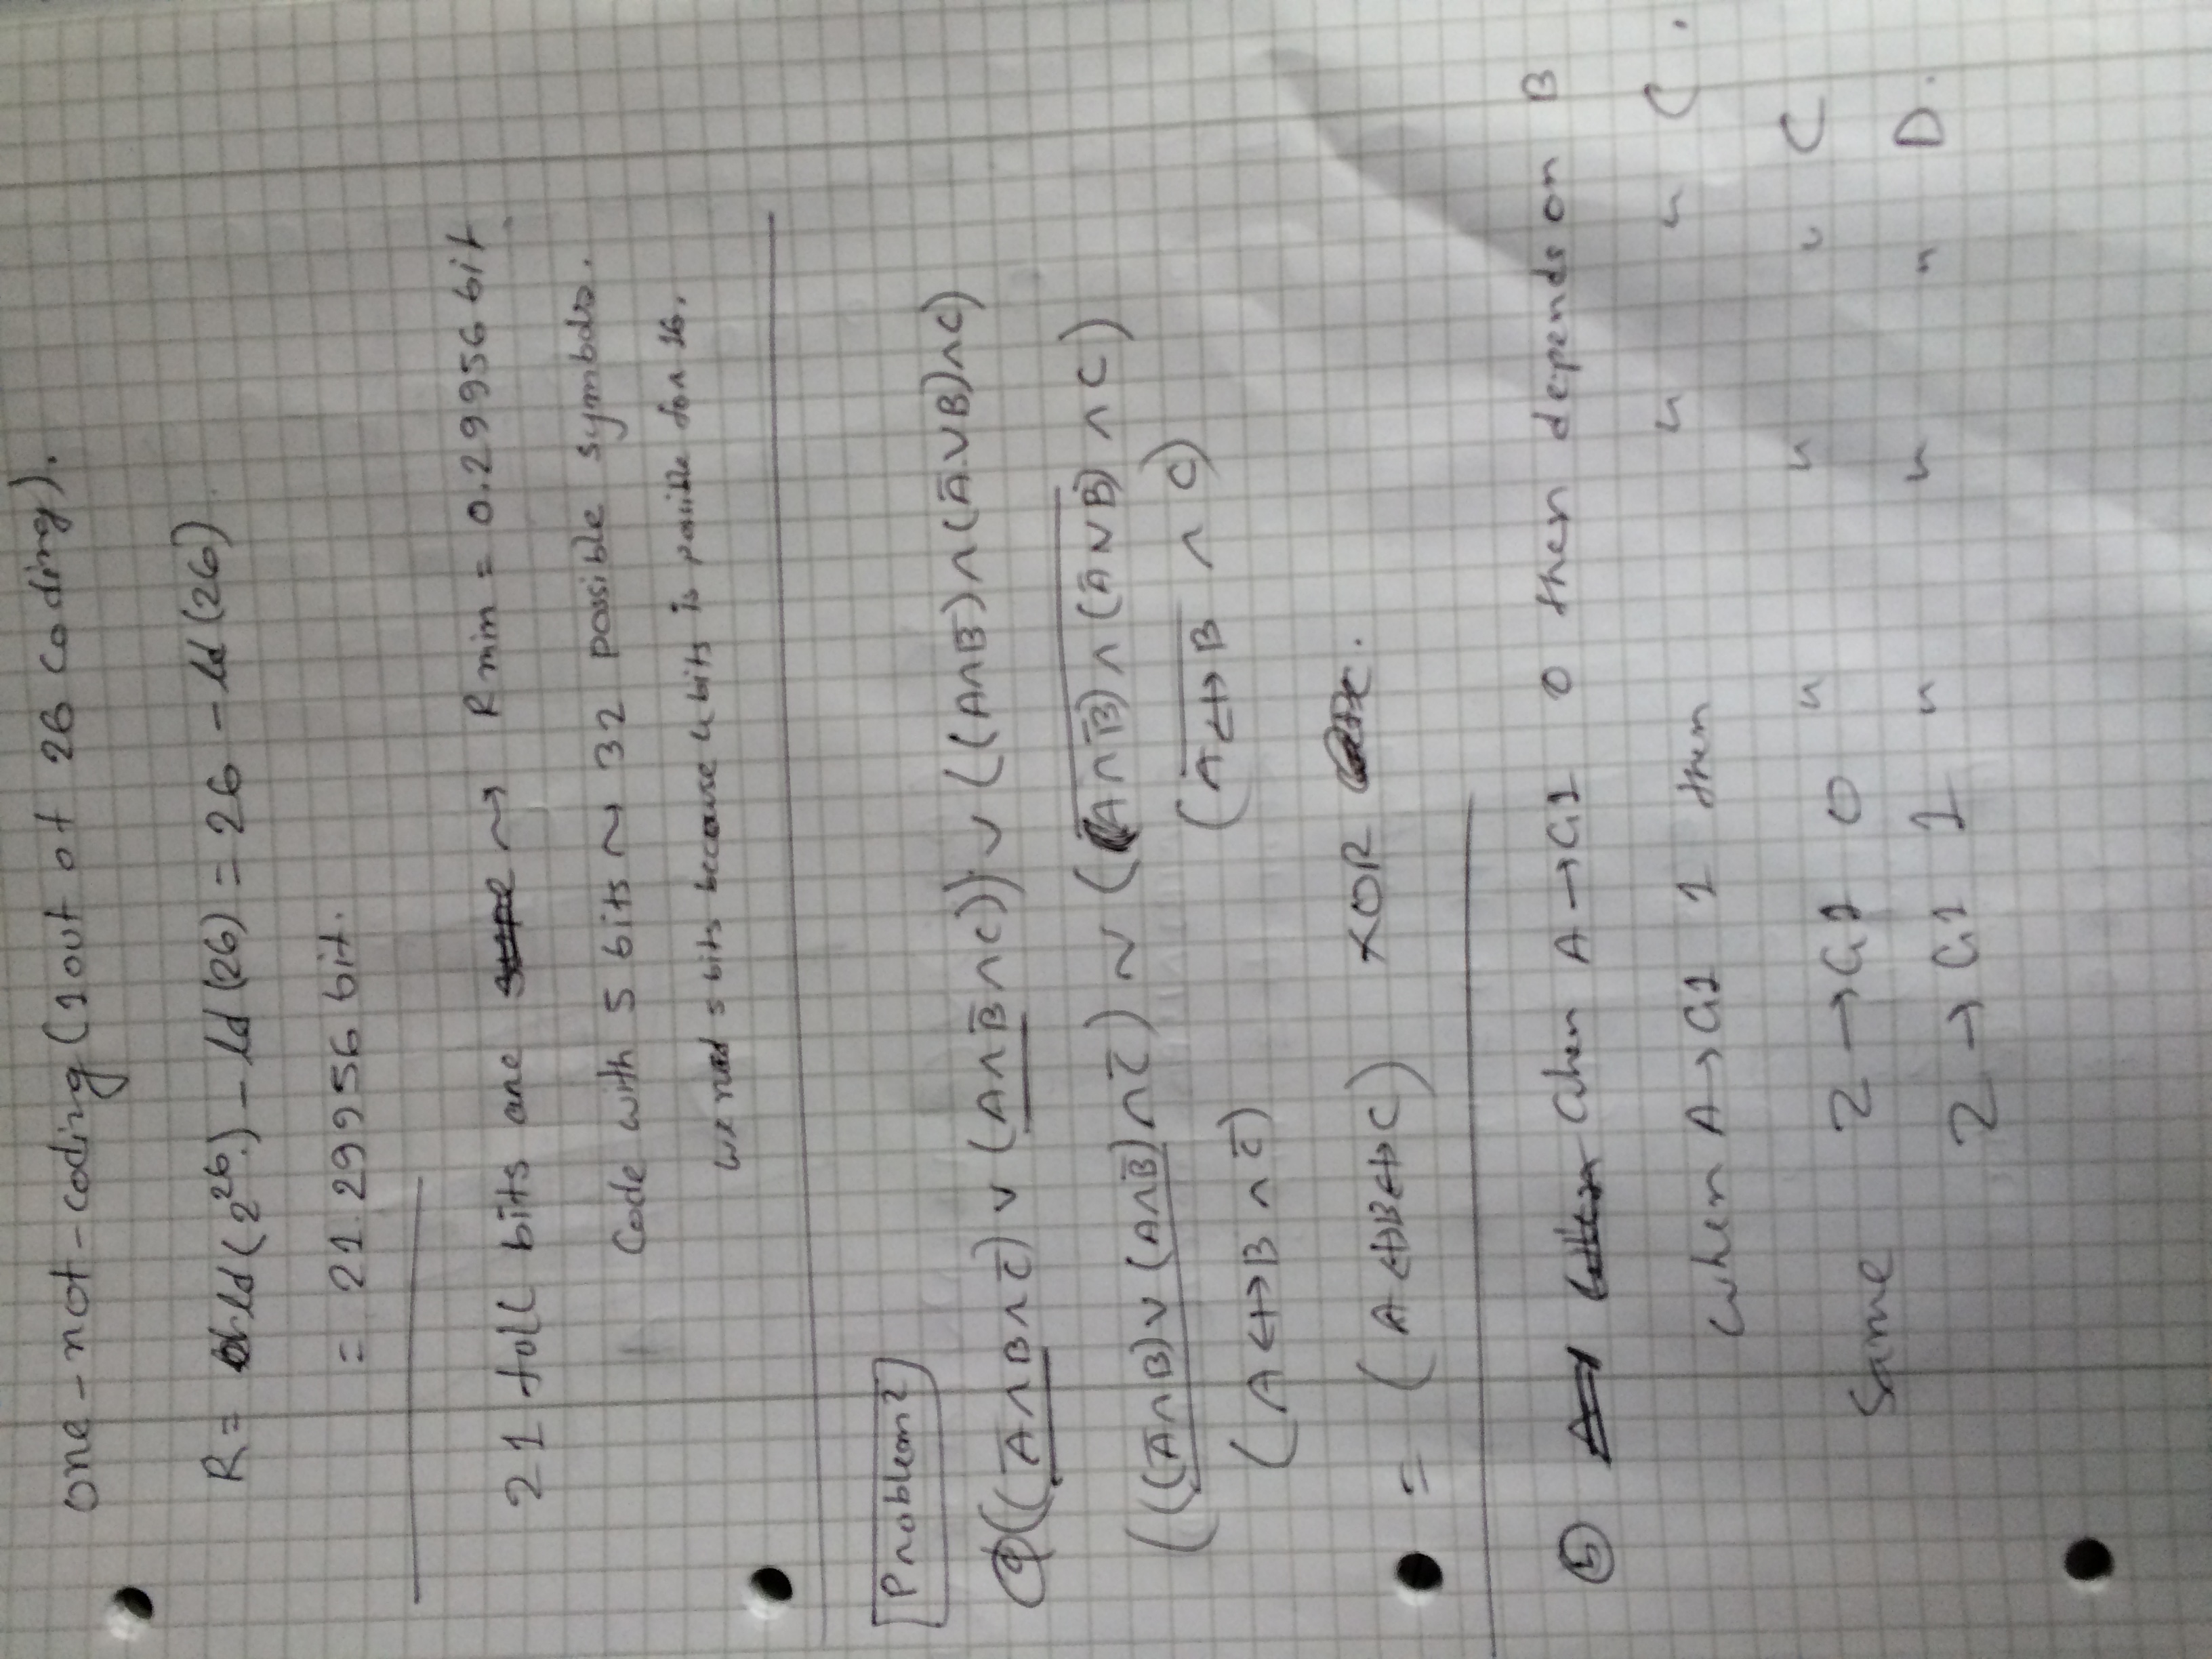 one-not-coding (1 out of 26 coding).
R = ld(2^26) - ld(26) = 26 - ld(26)
= 21.29956 bit.
21 full bits are ⇝ R min = 0.29956 bit
Code with 5 bits ⇝ 32 possible symbols.
We need 5 bits because 4 bits is possible for 16.
Problem 2
((A̅∧B∧C̅) ∨ (A∧B̅∧C)) ∨ ((A∧B̅)∧(A̅∨B)∧C)
(((A̅∧B)∨(A∧B̅)∧C̅) ∨ ((A∧B̅)∧(A̅∨B)∧C)
(A↮B∧C̅) (A↮B ∧ C)
= (A↮B↮C) XOR
⑤ When A→G1 0 then depends on B
When A→G1 1 then " " C.
Same Z→G1 0 " " " C
Z→G1 1 " " " D.